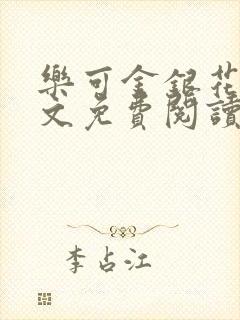 樂可金銀花
文免費閱讀
李占江